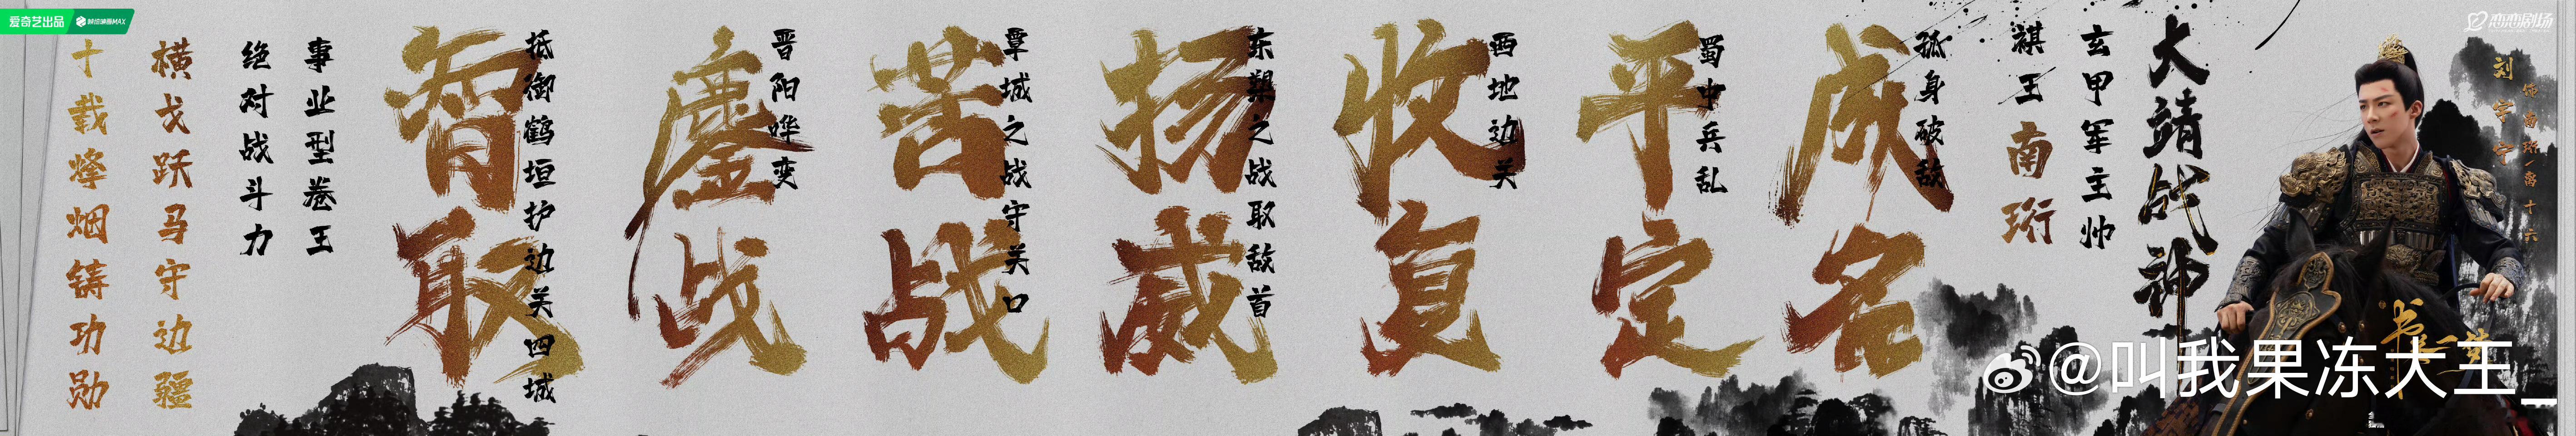 爱奇艺出品
恋恋剧场
刘宇宁
饰 南珩/离十六
书卷一梦
大靖战神
玄甲军主帅
祺王南珩
孤身破敌
成名
蜀中兵乱
平定
西地边关
收复
东槊之战取敌首
扬威
覃城之战守关口
苦战
晋阳哗变
鏖战
抵御鹤垣护边关四城
智取
事业型卷王
绝对战斗力
横戈跃马守边疆
十载烽烟铸功勋
@叫我果冻大王_